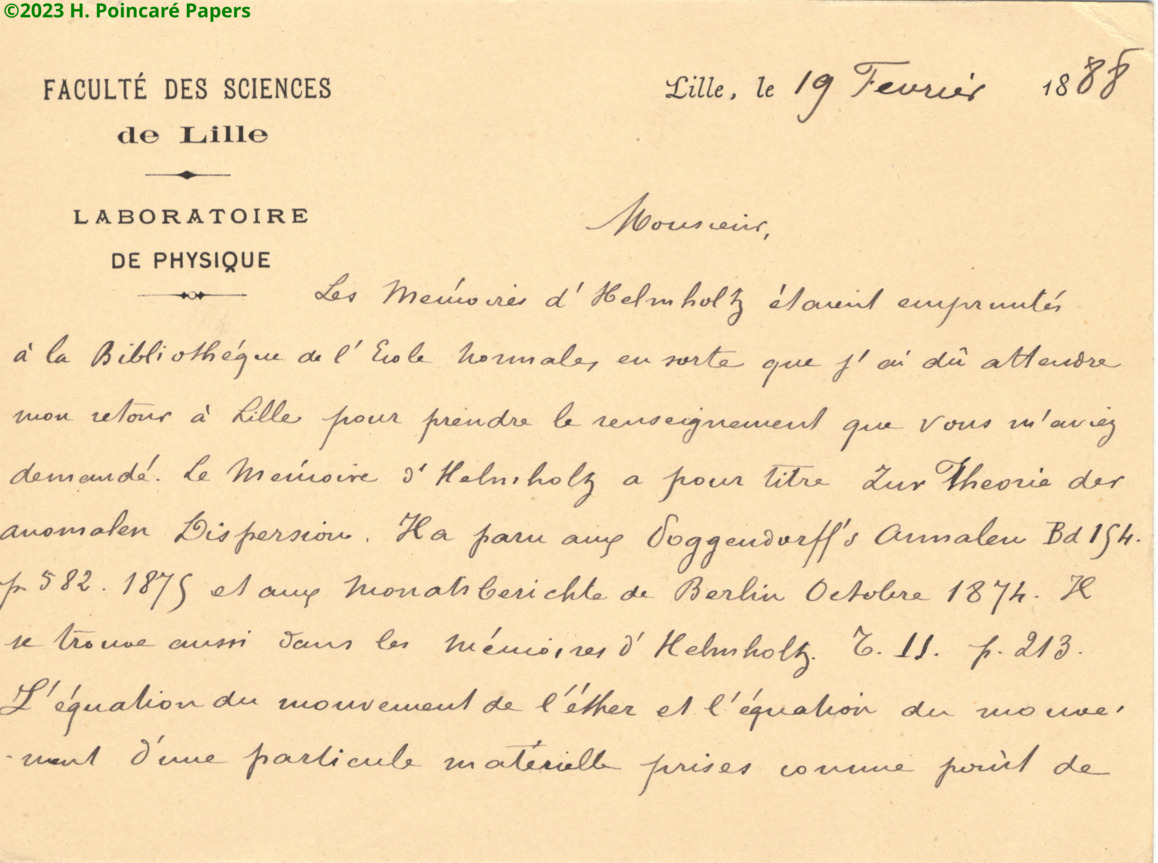 ©2023 H. Poincaré Papers
FACULTÉ DES SCIENCES
de Lille
LABORATOIRE
DE PHYSIQUE
Lille, le 19 Fevrier 1888
Monsieur,
Les Mémoires d'Helmholtz étaient empruntés
à la Bibliothéque de l'Ecole Normale, en sorte que j'ai dû attendre
mon retour à Lille pour prendre le renseignement que vous m'aviez
demandé. Le Mémoire d'Helmholtz a pour titre Zur Theorie der
anomalen Dispersion. Il a paru aux Poggendorff's Annalen Bd 154.
p. 582. 1875 et aux Monatsberichte de Berlin Octobre 1874. Il
se trouve aussi dans les Mémoires d'Helmholtz. T. II. p. 213.
L'équation du mouvement de l'éther et l'équation du mouve-
-ment d'une particule matérielle prises comme point de